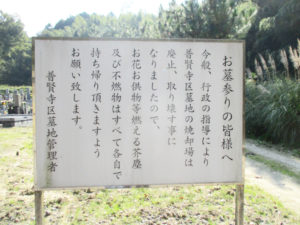 お墓参りの皆様へ
今般、行政の指導により
普賢寺区墓地の焼却場は
廃止、取り壊す事に
なりましたので、
お花お供物等燃える芥塵
及び不燃物はすべて各自で
持ち帰り頂きますよう
お願い致します。
普賢寺区墓地管理者